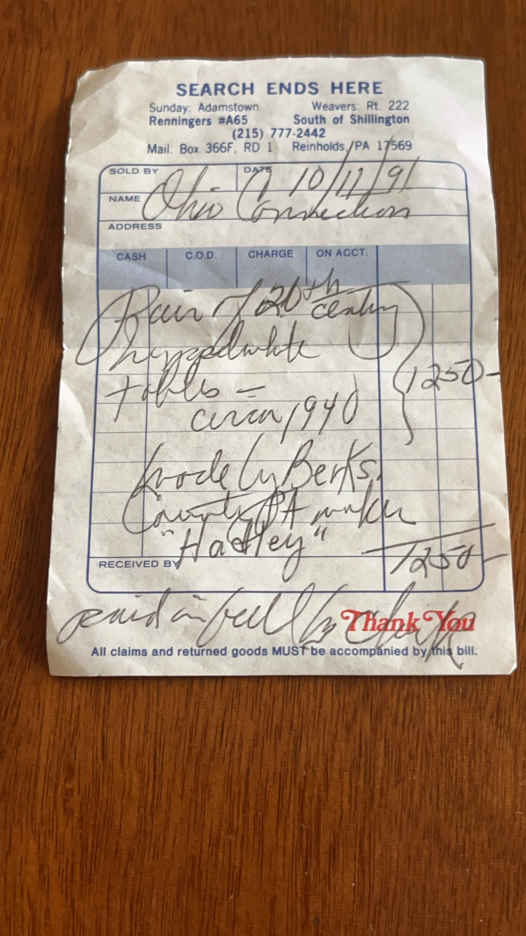 SEARCH ENDS HERE
Sunday: Adamstown Weavers Rt. 222
Renningers #A65 South of Shillington
(215) 777-2442
Mail: Box 366F, RD 1 Reinholds, PA 17569
SOLD BY DATE 10/11/91
NAME Ohio Connection
ADDRESS
CASH C.O.D. CHARGE ON ACCT.
Pair of 20th century
heppelwhite
tables – 1250–
circa 1940
made by Berks
County PA maker
"Hadley"
RECEIVED BY 1250–
paid in full by check
Thank You
All claims and returned goods MUST be accompanied by this bill.